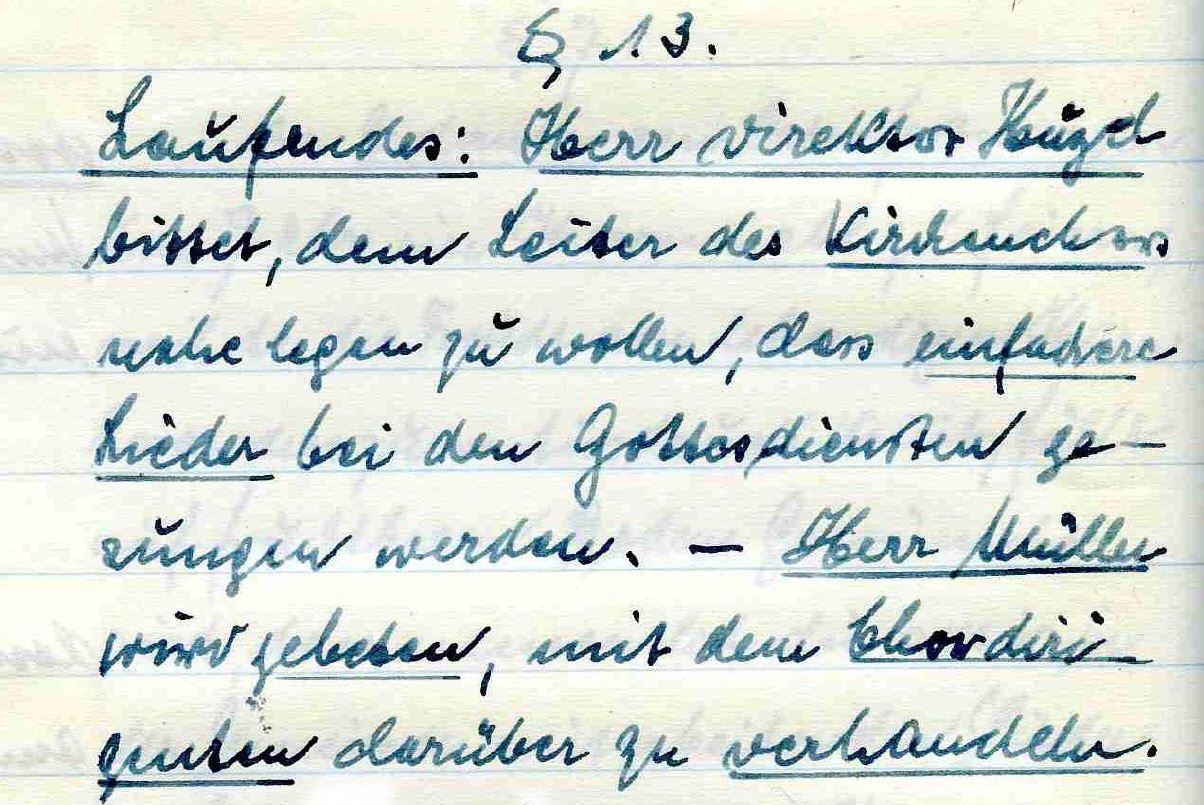 § 13.
Laufendes: Herr Direktor Hügel
bittet, dem Leiter des Kirchenchors
nahe legen zu wollen, dass einfachere
Lieder bei den Gottesdiensten ge-
sungen werden. - Herr Müller
wird gebeten, mit dem Chordiri-
genten darüber zu verhandeln.